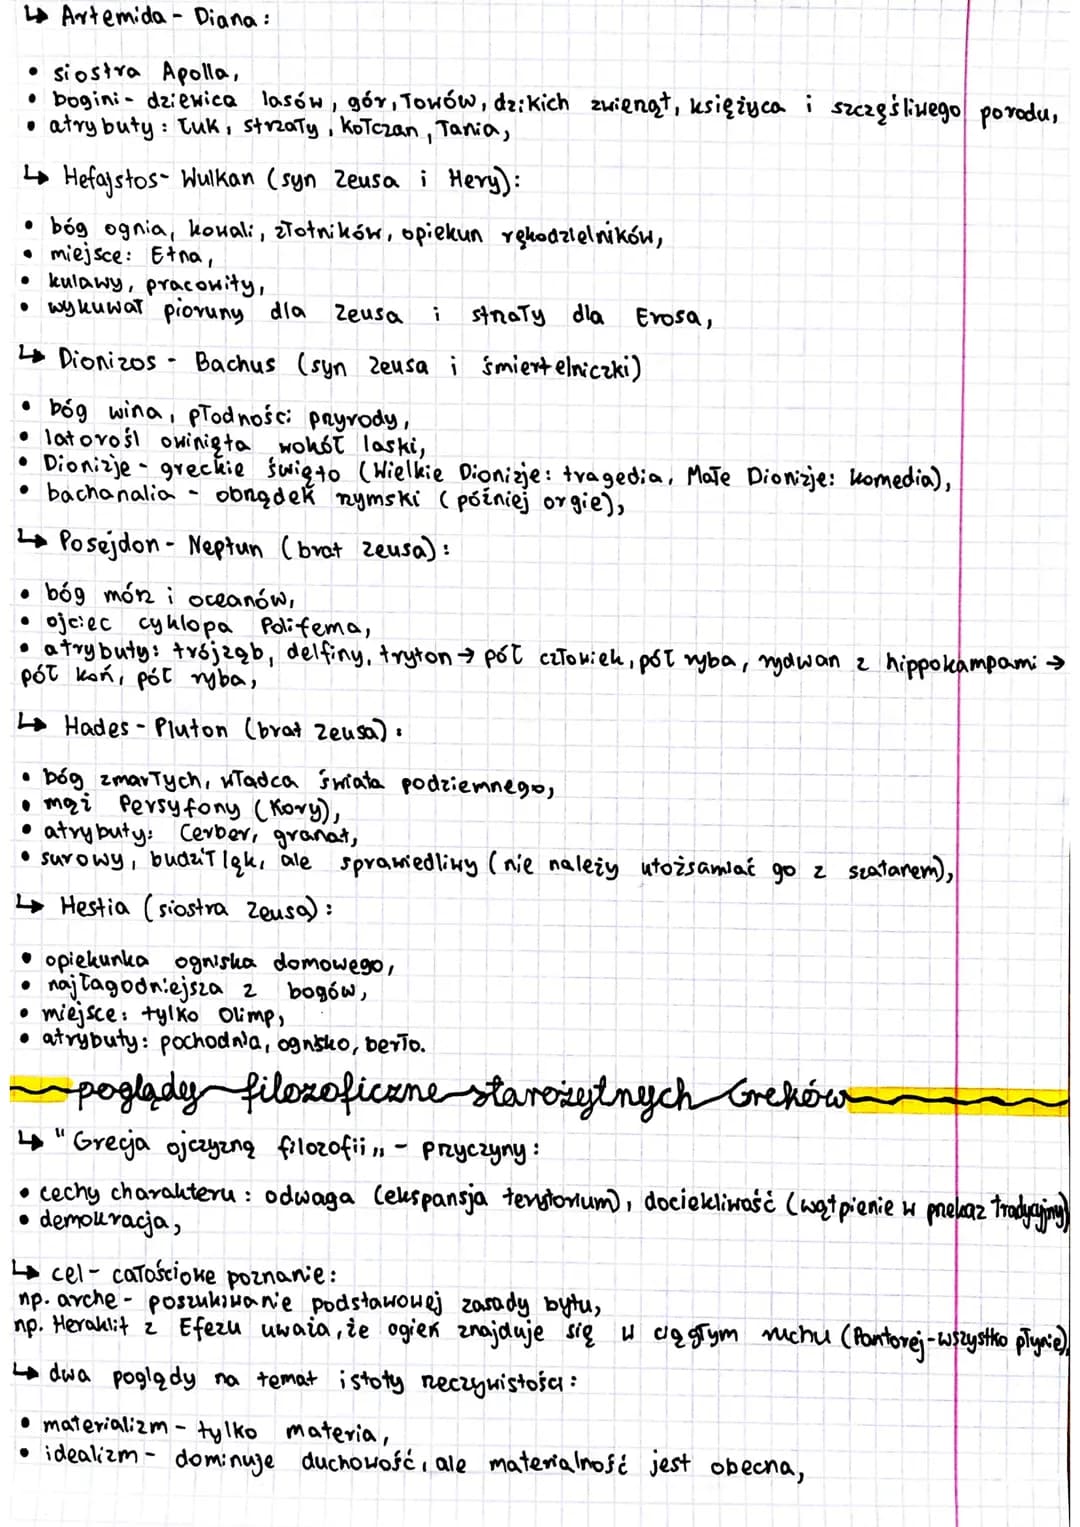 ↳ Artemida - Diana:
• siostra Apolla,
• bogini - dziewica lasów, gór, łowów, dzikich zwierząt, księżyca i szczęśliwego porodu,
• atrybuty: łuk, strzały, kołczan, łania,
↳ Hefajstos - Wulkan (syn Zeusa i Hery):
• bóg ognia, kowali, złotników, opiekun rękodzielników,
• miejsce: Etna,
• kulawy, pracowity,
• wykuwał pioruny dla Zeusa i strzały dla Erosa,
↳ Dionizos - Bachus (syn Zeusa i śmiertelniczki)
• bóg wina, płodności przyrody,
• latorośl owinięta wokół laski,
• Dionizje - greckie święto (Wielkie Dionizje: tragedia, Małe Dionizje: komedia),
• bachanalia - obrządek rzymski (później orgie),
↳ Posejdon - Neptun (brat Zeusa):
• bóg mórz i oceanów,
• ojciec cyklopa Polifema,
• atrybuty: trójząb, delfiny, tryton → pół człowiek, pół ryba, rydwan z hippokampami →
pół koń, pół ryba,
↳ Hades - Pluton (brat Zeusa):
• bóg zmarłych, władca świata podziemnego,
• mąż Persyfony (Kory),
• atrybuty: Cerber, granat,
• surowy, budził lęk, ale sprawiedliwy (nie należy utożsamiać go z szatanem),
↳ Hestia (siostra Zeusa):
• opiekunka ogniska domowego,
• najłagodniejsza z bogów,
• miejsce: tylko Olimp,
• atrybuty: pochodnia, ognisko, berło.
poglądy filozoficzne starożytnych Greków
↳ "Grecja ojczyzną filozofii,, - przyczyny:
• cechy charakteru: odwaga (ekspansja terytorium), dociekliwość (wątpienie w przekaz tradycyjny)
• demokracja,
↳ cel - całościowe poznanie:
np. arche - poszukiwanie podstawowej zasady bytu,
np. Heraklit z Efezu uważa, że ogień znajduje się w ciągłym ruchu (Pantorej - wszystko płynie),
↳ dwa poglądy na temat istoty rzeczywistości:
• materializm - tylko materia,
• idealizm - dominuje duchowość, ale materialność jest obecna,